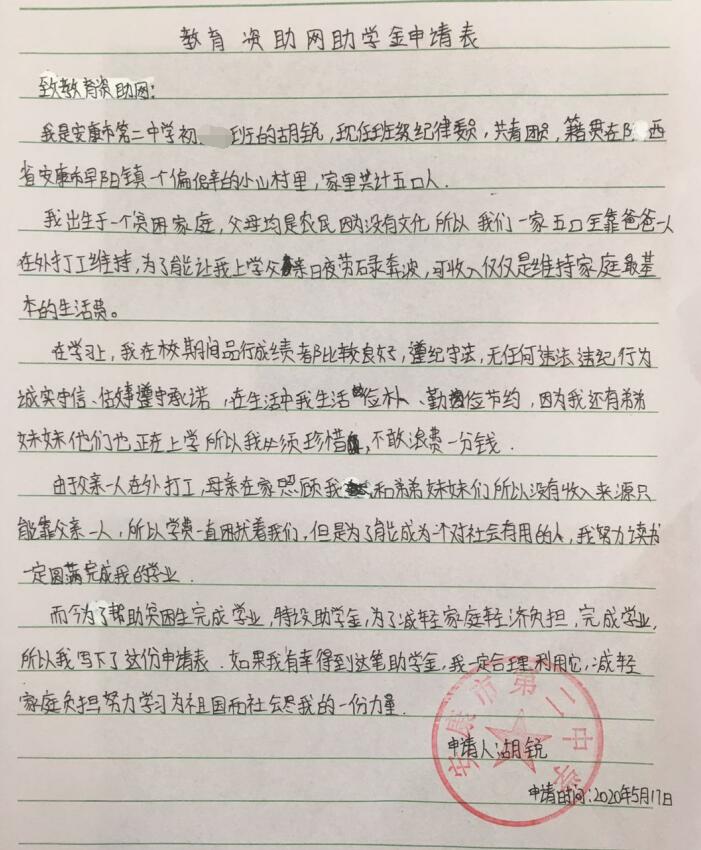 教育资助网助学金申请表
致教育资助网:
我是安康市第二中学初 班的胡锐,现任班级纪律委员,共青团员,籍贯在陕西
省安康市早阳镇一个偏僻的小山村里,家里共计五口人.
我出生于一个贫困家庭,父母均是农民因为没有文化所以我们一家五口全靠爸爸一人
在外打工维持,为了能让我上学父亲日夜劳碌奔波,可收入仅仅是维持家庭最基
本的生活费。
在学习上,我在校期间品行成绩者都比较良好,遵纪守法,无任何违法违纪行为
诚实守信、任事遵守承诺,在生活中我生活俭朴、勤俭节约,因为我还有弟弟
妹妹他们也正在上学所以我必须珍惜,不敢浪费一分钱.
由于父亲一人在外打工,母亲在家照顾我和弟弟妹妹们所以没有收入来源只
能靠父亲一人,所以学费一直困扰着我们,但是为了能成为一个对社会有用的人,我努力读书
一定圆满完成我的学业.
而今为了帮助贫困生完成学业,特设助学金,为了减轻家庭轻济负担,完成学业,
所以我写下了这份申请表.如果我有幸得到这笔助学金,我一定合理利用它,减轻
家庭负担努力学习为祖国而社会尽我的一份力量.
安康市第二中学
申请人:胡锐
申请时间:2020年5月17日